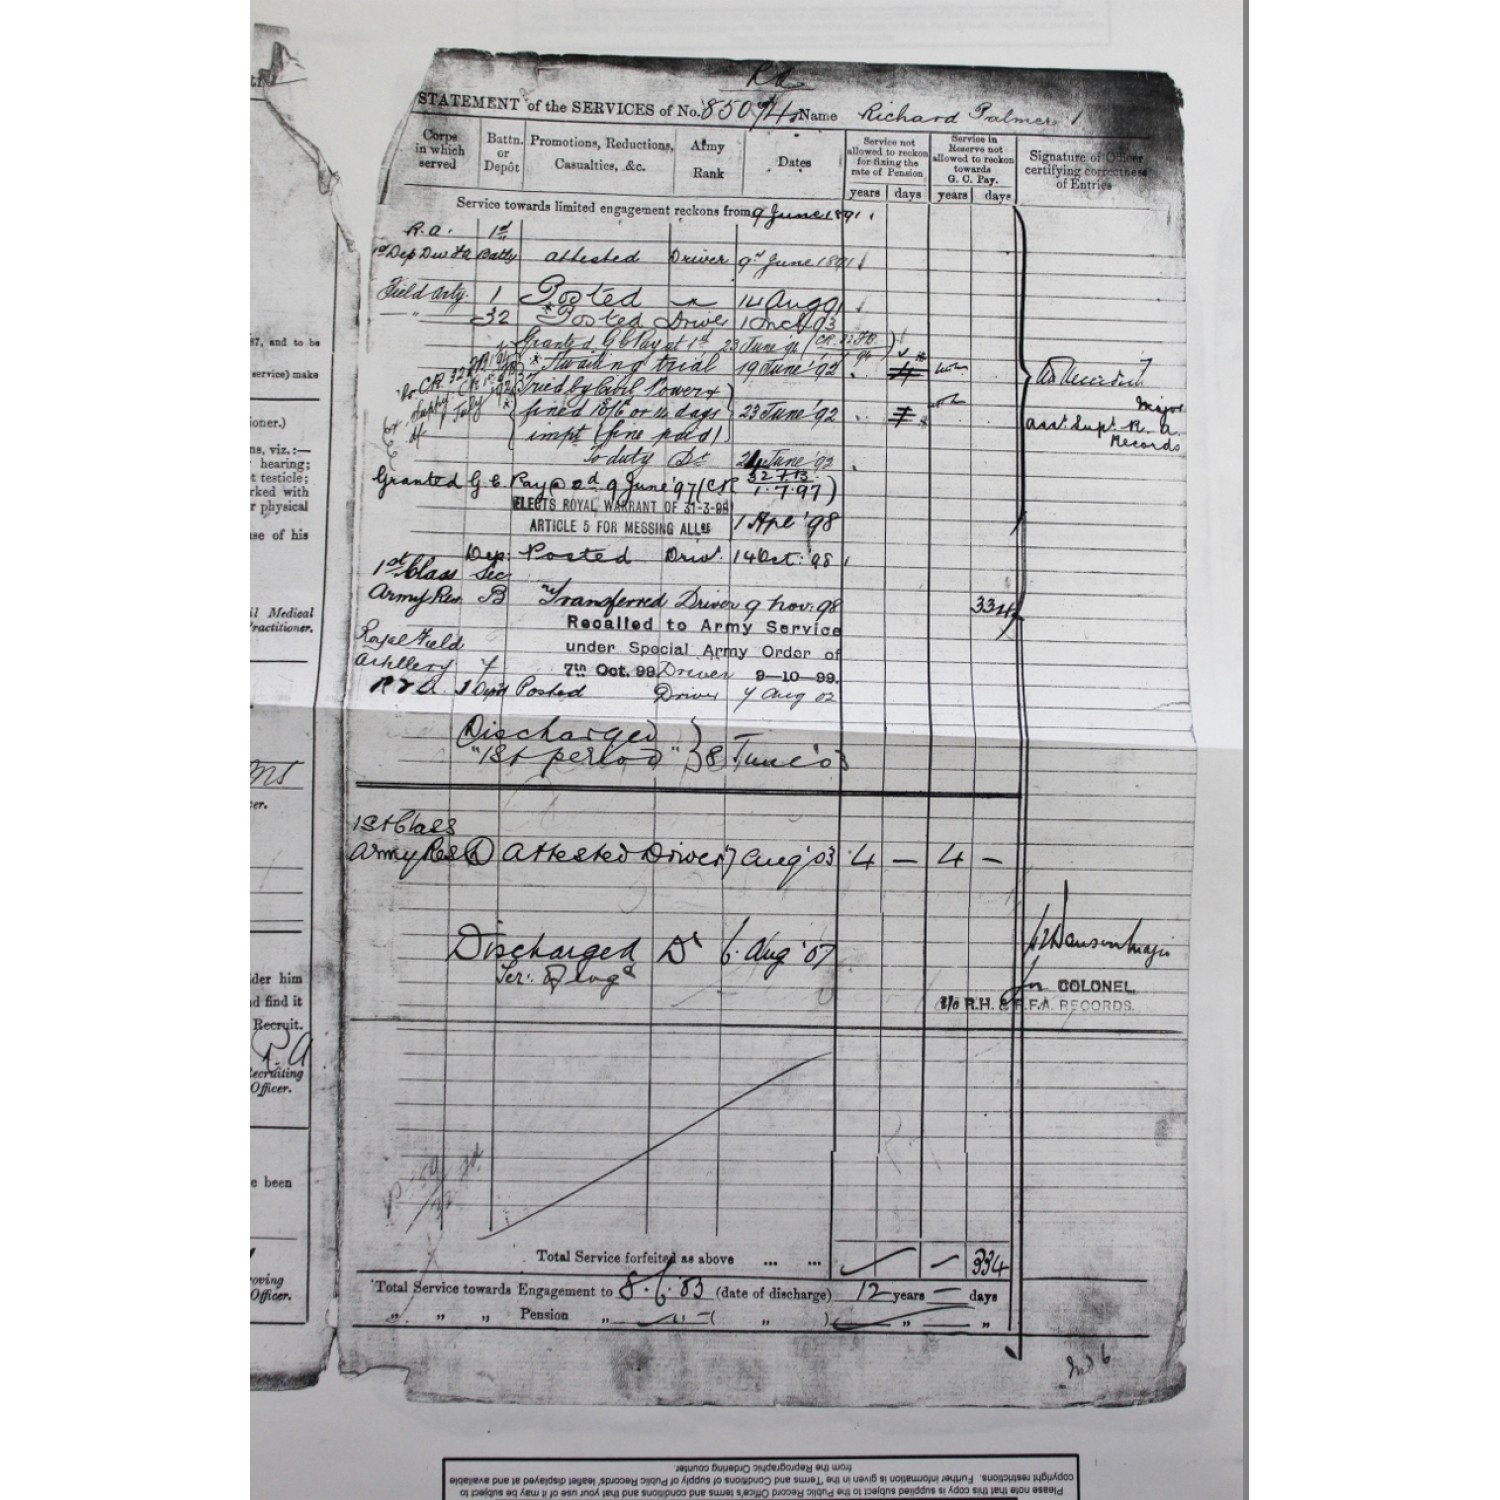 R A
STATEMENT of the SERVICES of No. 85094 Name Richard Palmer
Corps in which served
Battn. or Depôt
Promotions, Reductions, Casualties, &c.
Army Rank
Dates
Service not allowed to reckon for fixing the rate of Pension
years days
Service in Reserve not allowed to reckon towards G. C. Pay.
years days
Signature of Officer certifying correctness of Entries
Service towards limited engagement reckons from 9 June 1891
R.A. 1st
1st Dep Div RA Batty attested Driver 9th June 1891
Field Arty. 1 Posted 14 Aug 91
" 32 Posted Driver 93
Granted G C Pay at 1d 23 June
Awaiting trial 19 June '92
Tried by Civil Power &
fined or days 23 June '92
impt (fine paid)
To duty Dr 24 June '92
Granted G C Pay @ 2d 9 June '97 (CR 1.7.97)
ELECTS ROYAL WARRANT OF 31-3-98
ARTICLE 5 FOR MESSING ALLCE 1 Apl '98
Major
Asst. Supt. R. A.
Records
Dep. Posted Driv. 14 Oct. '98
1st Class Sec
Army Res. B Transferred Driver 9 Nov. 98 334
Recalled to Army Service
under Special Army Order of
Royal Field
Artillery 7 7th Oct. 99. Driver 9—10—99.
R F A Depôt Posted Driver 7 Aug 02
Discharged
"1st period" 8 June '03
1st Class
Army Res D Attested Driver 7 Aug '03 4 — 4 —
Discharged Dr 6. Aug '07
Ter: of Engt
Major
for COLONEL,
I/c R.H. & R.F.A. RECORDS.
Total Service forfeited as above ... ... — 334
Total Service towards Engagement to 8.6.03 (date of discharge) 12 years — days
" " " Pension " " " "
87, and to be
service) make
oner.)
ns, viz.:—
hearing;
t testicle;
rked with
r physical
use of his
il Medical
Practitioner.
ter.
der him
d find it
Recruit.
Recruiting
Officer.
e been
roving
Officer.
Please note that this copy is supplied subject to the Public Record Office's terms and conditions and that your use of it may be subject to
copyright restrictions. Further information is given in the 'Terms and Conditions of supply of Public Records' leaflet displayed at and available
from the Reprographic Ordering counter.